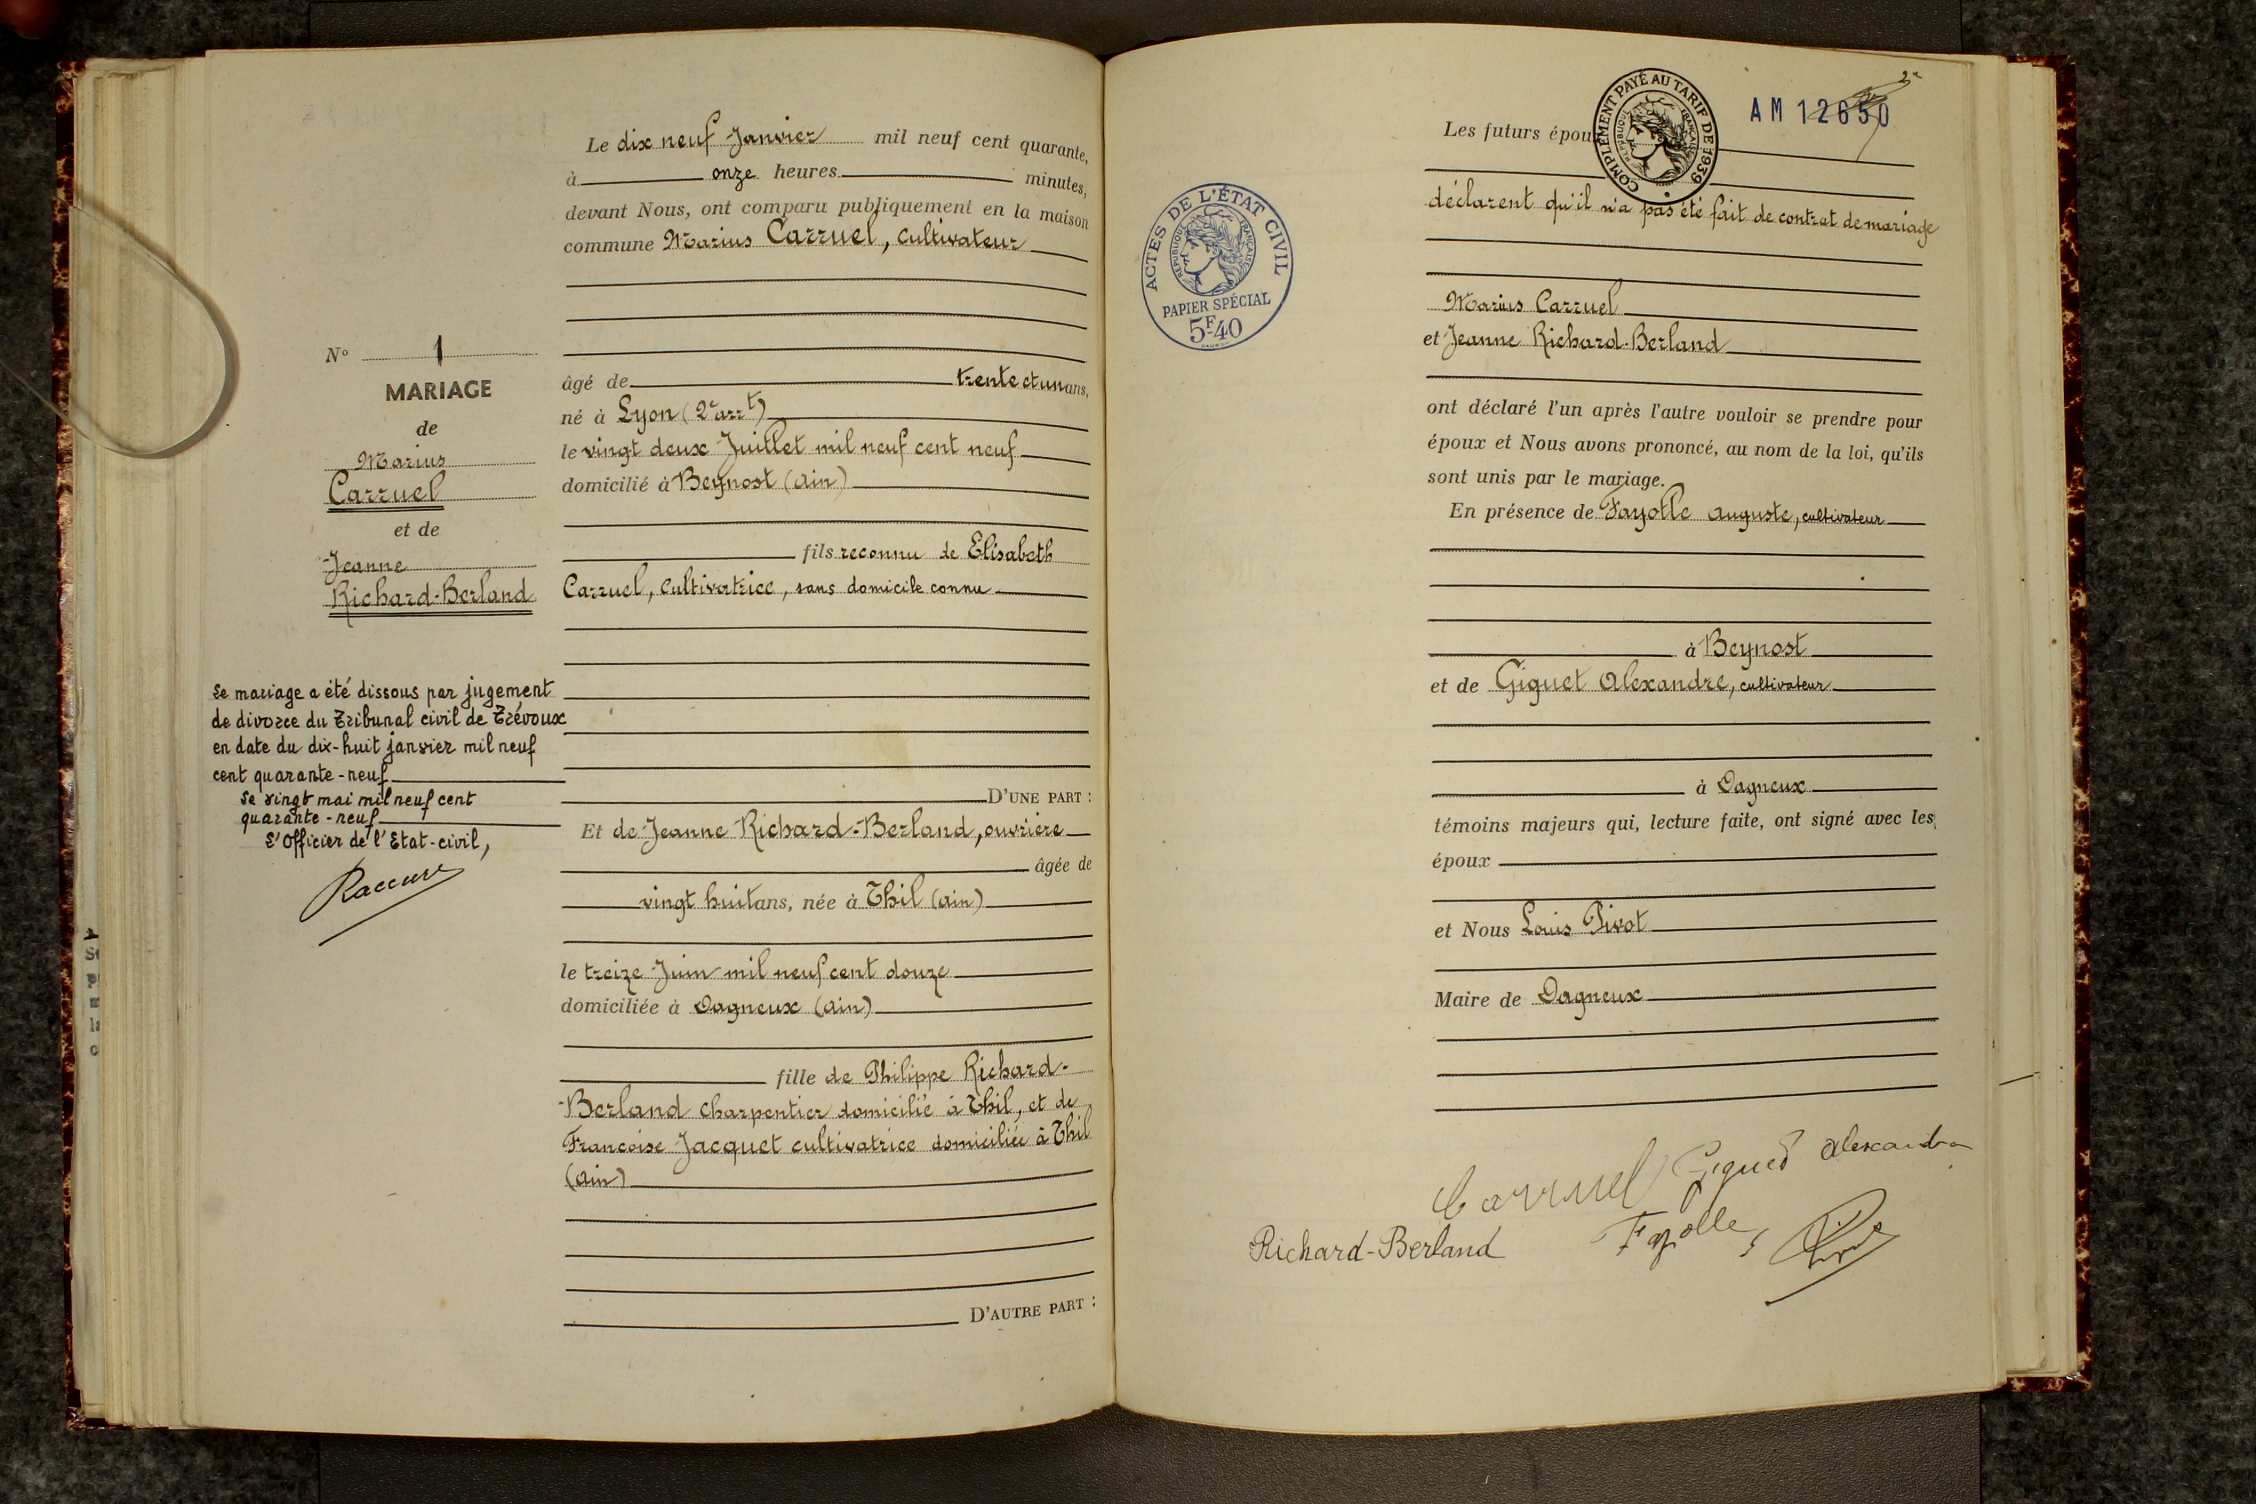 Le dix neuf Janvier mil neuf cent quarante,
à onze heures minutes,
devant Nous, ont comparu publiquement en la maison
commune Marius Carruel, cultivateur
N° 1
MARIAGE
de
Marius
Carruel
et de
Jeanne
Richard-Berland
âgé de trente et un ans,
né à Lyon (2e arrt)
le vingt deux Juillet mil neuf cent neuf
domicilié à Beynost (Ain)
fils reconnu de Elisabeth
Carruel, cultivatrice, sans domicile connu
Le mariage a été dissous par jugement
de divorce du Tribunal civil de Trévoux
en date du dix-huit janvier mil neuf
cent quarante-neuf
Le vingt mai mil neuf cent
quarante-neuf
L'Officier de l'Etat-civil,
D'UNE PART :
Et de Jeanne Richard-Berland, ouvrière
âgée de
vingt huit ans, née à Thil (Ain)
le treize Juin mil neuf cent douze
domiciliée à Dagneux (Ain)
fille de Philippe Richard-
-Berland charpentier domicilié à Thil, et de
Francoise Jacquet cultivatrice domiciliée à Thil
(Ain)
D'AUTRE PART :
COMPLÉMENT PAYÉ AU TARIF DE 1939
RÉPUBLIQUE FRANÇAISE
AM 12650
2e
ACTES DE L'ÉTAT CIVIL
RÉPUBLIQUE FRANÇAISE
PAPIER SPÉCIAL
5F40
Les futurs épou
déclarent qu'il n'a pas été fait de contrat de mariage
Marius Carruel
et Jeanne Richard-Berland
ont déclaré l'un après l'autre vouloir se prendre pour
époux et Nous avons prononcé, au nom de la loi, qu'ils
sont unis par le mariage.
En présence de Fayolle Auguste, cultivateur
à Beynost
et de Giguet Alexandre, cultivateur
à Dagneux
témoins majeurs qui, lecture faite, ont signé avec les
époux
et Nous Louis Pivot
Maire de Dagneux
Carruel Giguet Alexandre
Richard-Berland Fayolle Pivot